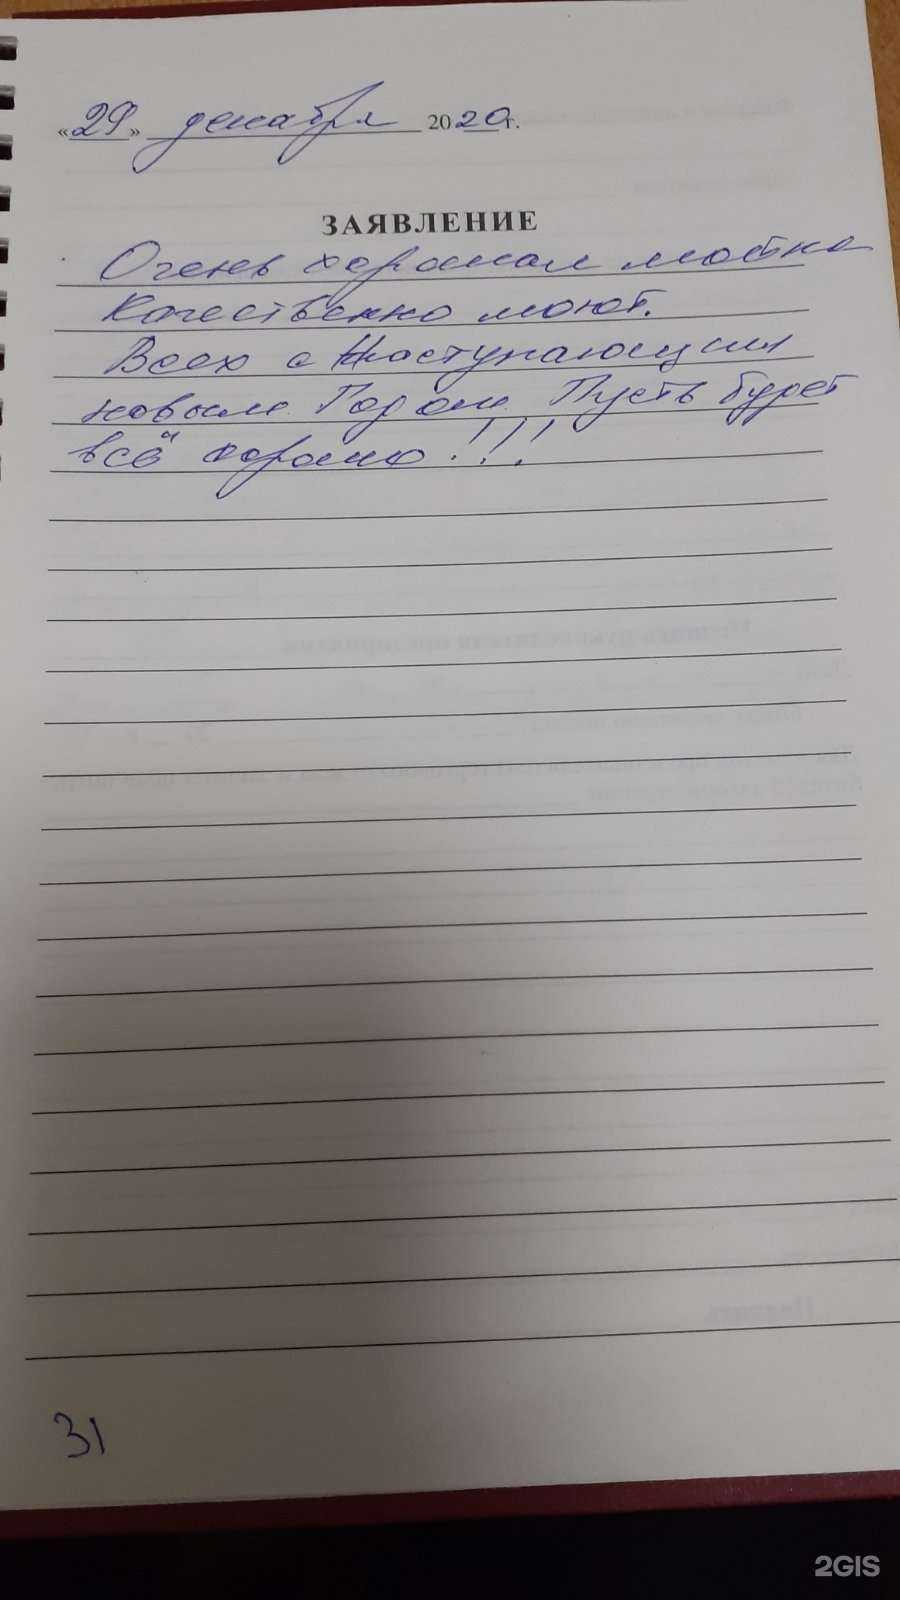 «29» декабря 2020 г.
ЗАЯВЛЕНИЕ
Очень хорошая мойка
Качественно моют.
Всех с Наступающим
новым Годом. Пусть будет
всё хорошо!!!
31
2GIS